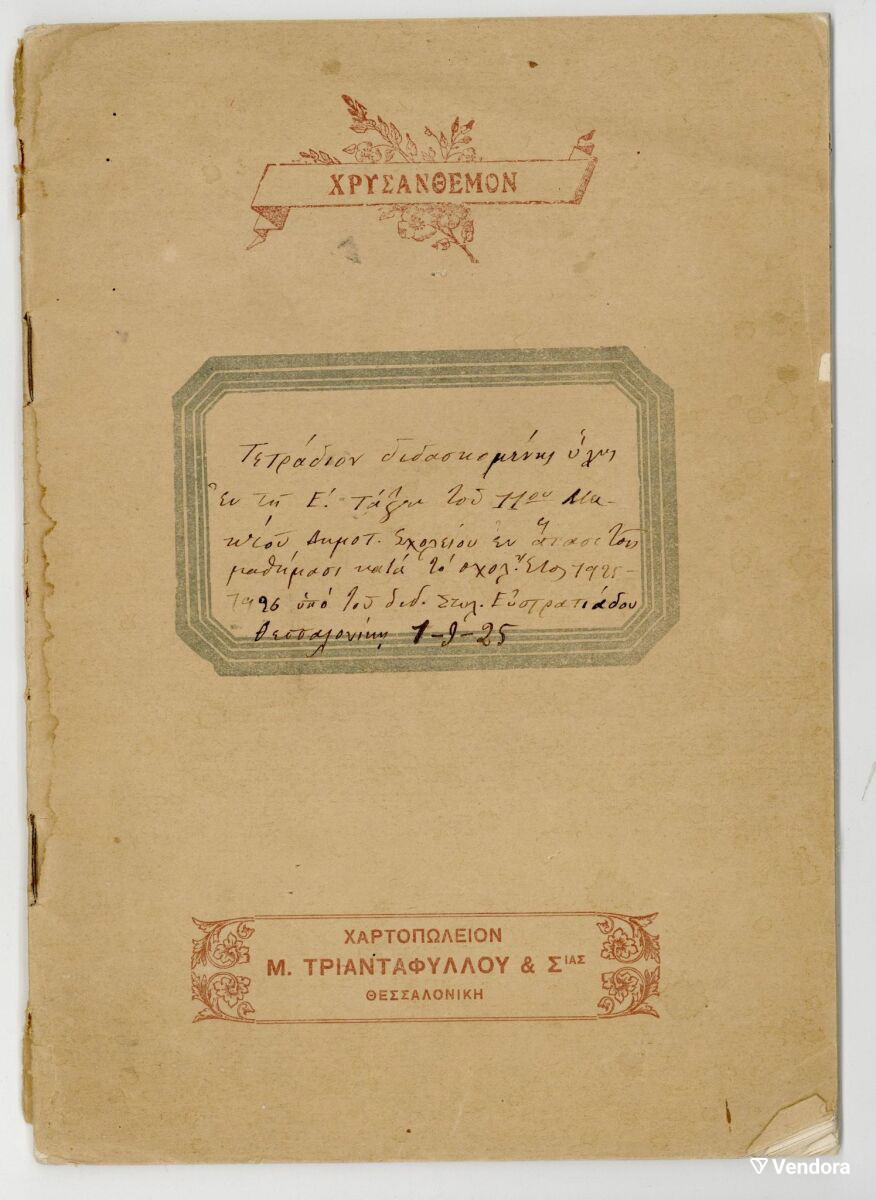 ΧΡΥΣΑΝΘΕΜΟΝ
Τετράδιον διδασκομένης ὕλης
Ἐν τῇ Ε΄. τάξει τοῦ 11ου
Δημοτ. Σχολείου ἐν ἅπασι τοῖς
μαθήμασι κατὰ τὸ σχολ. Ἔτος 1925-
1926 ὑπὸ τοῦ διδ. Στυλ. Εὐστρατιάδου
Θεσσαλονίκη 1-9-25
ΧΑΡΤΟΠΩΛΕΙΟΝ
Μ. ΤΡΙΑΝΤΑΦΥΛΛΟΥ & ΣΙΑΣ
ΘΕΣΣΑΛΟΝΙΚΗ
Vendora